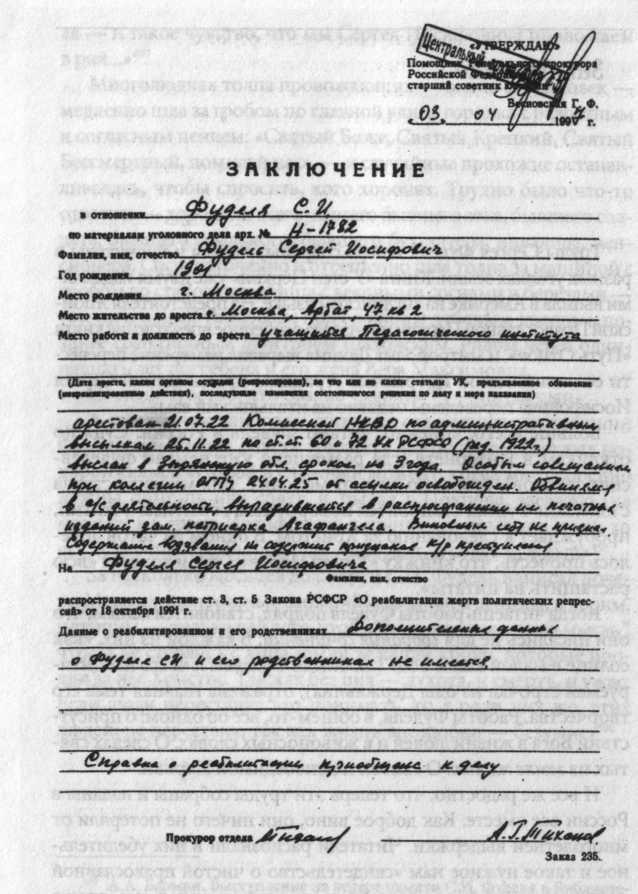 Центральный
«УТВЕРЖДАЮ»
Помощник Генерального прокурора
Российской Федерации
старший советник юстиции
Весновская Г. Ф.
„03. 04 1997 г.
ЗАКЛЮЧЕНИЕ
в отношении Фуделя С.И
по материалам уголовного дела арх. № Н-1782
Фамилия, имя, отчество Фудель Сергей Иосифович
Год рождения 1901
Место рождения г. Москва
Место жительства до ареста г. Москва, Арбат, 47 кв 2
Место работы и должность до ареста учащийся Педагогического института
(Дата ареста, каким органом осужден (репрессирован), за что или по каким статьям УК, предъявленное обвинение
(инкриминированные действия), последующие изменения состоявшегося решения по делу и мера наказания)
арестован 21.07.22 Комиссией НКВД по административным
высылкам 25.11.22 по ст.ст. 60 и 72 УК РСФСР (ред. 1922г.)
выслан в Зырянскую обл. сроком на 3 года. Особым совещанием
при коллегии ОГПУ 24.04.25 от ссылки освобожден. Обвинялся
в а/с деятельности, выразившейся в распространении им печатных
изданий зам. патриарха Агафангела. Виновным себя не признал.
Содержание воззвания не содержит признаков к/р преступления
На Фуделя Сергея Иосифовича
Фамилия, имя, отчество
распространяется действие ст. 3, ст. 5 Закона РСФСР «О реабилитации жертв политических репрес-
сий» от 18 октября 1991 г.
Данные о реабилитированном и его родственниках Дополнительных данных
о Фуделе СИ и его родственниках не имеется
Справка о реабилитации приобщена к делу
Прокурор отдела
Заказ 235.